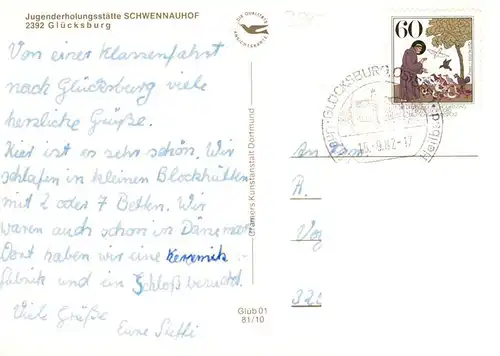 Jugenderholungsstätte SCHWENNAUHOF
2392 Glücksburg
Von einer Klassenfahrt
nach Glücksburg viele
herzliche Grüße.
Hier ist es sehr schön. Wir
schlafen in kleinen Blockhütten
mit 2 oder 7 Betten. Wir
waren auch schon in Dänemar
Dort haben wir eine Keramik-
fabrik und ein Schloß besucht.
Viele Grüße
Eure Steffi
Cramers Kunstanstalt Dortmund
Glüb 01
81/10
60
GLÜCKSBURG, OSTSEE
-9.82-17
Heilbad
An